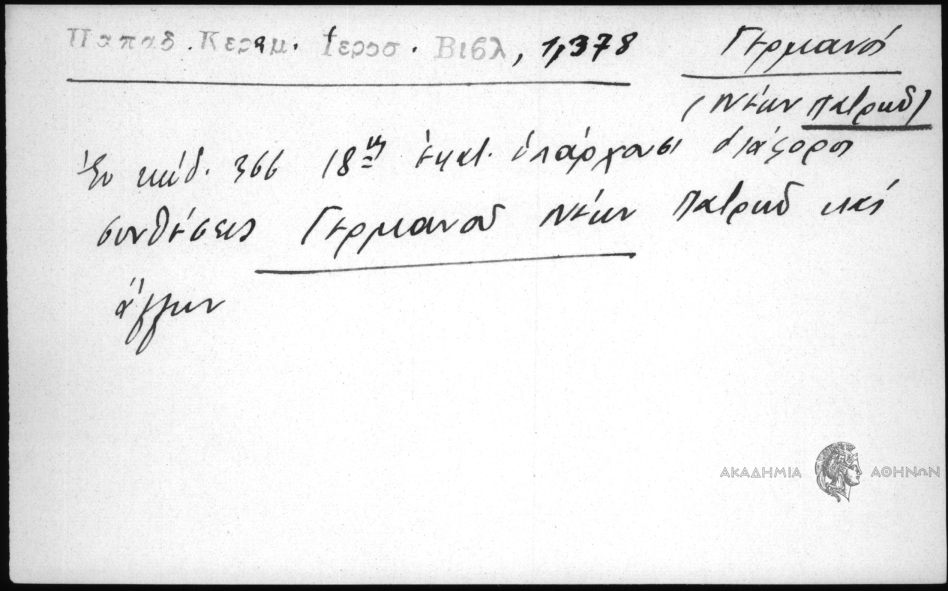 Παπαδ. Κεραμ. Ιεροσ. Βιβλ, 1,378
Γερμανός
(Νέων Πατρῶν)
Ἐν κώδ. 366 18ης ἑκατ. ὑπάρχουσι διάφοροι
συνθέσεις Γερμανοῦ Νέων Πατρῶν καὶ
ἄλλων
ΑΚΑΔΗΜΙΑ ΑΘΗΝΩΝ